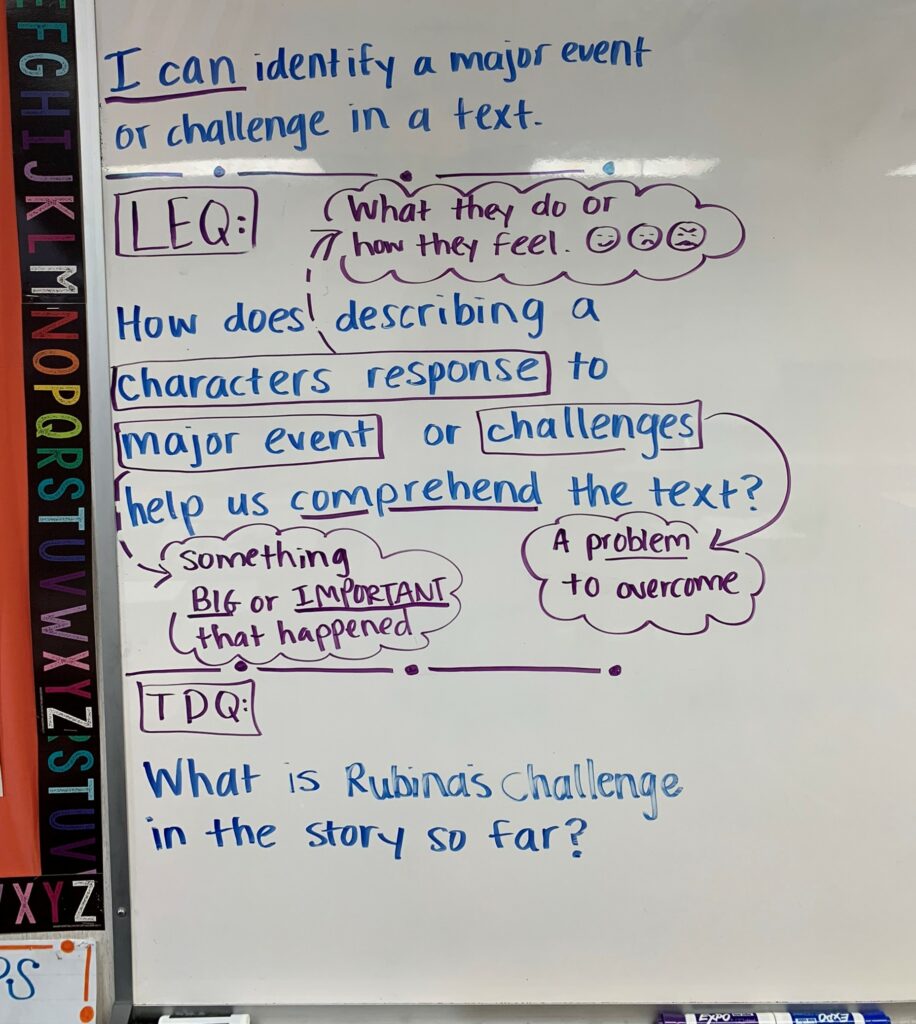 I can identify a major event
or challenge in a text.
LEQ:
What they do or
how they feel.
How does describing a
characters response to
major event or challenges
help us comprehend the text?
something
BIG or IMPORTANT
that happened
A problem
to overcome
TDQ:
What is Rubina's challenge
in the story so far?
EFGHIJKLMNOPQRSTUVWXYZ
RSTUV
XYZ
PS
EXPO
EXPO